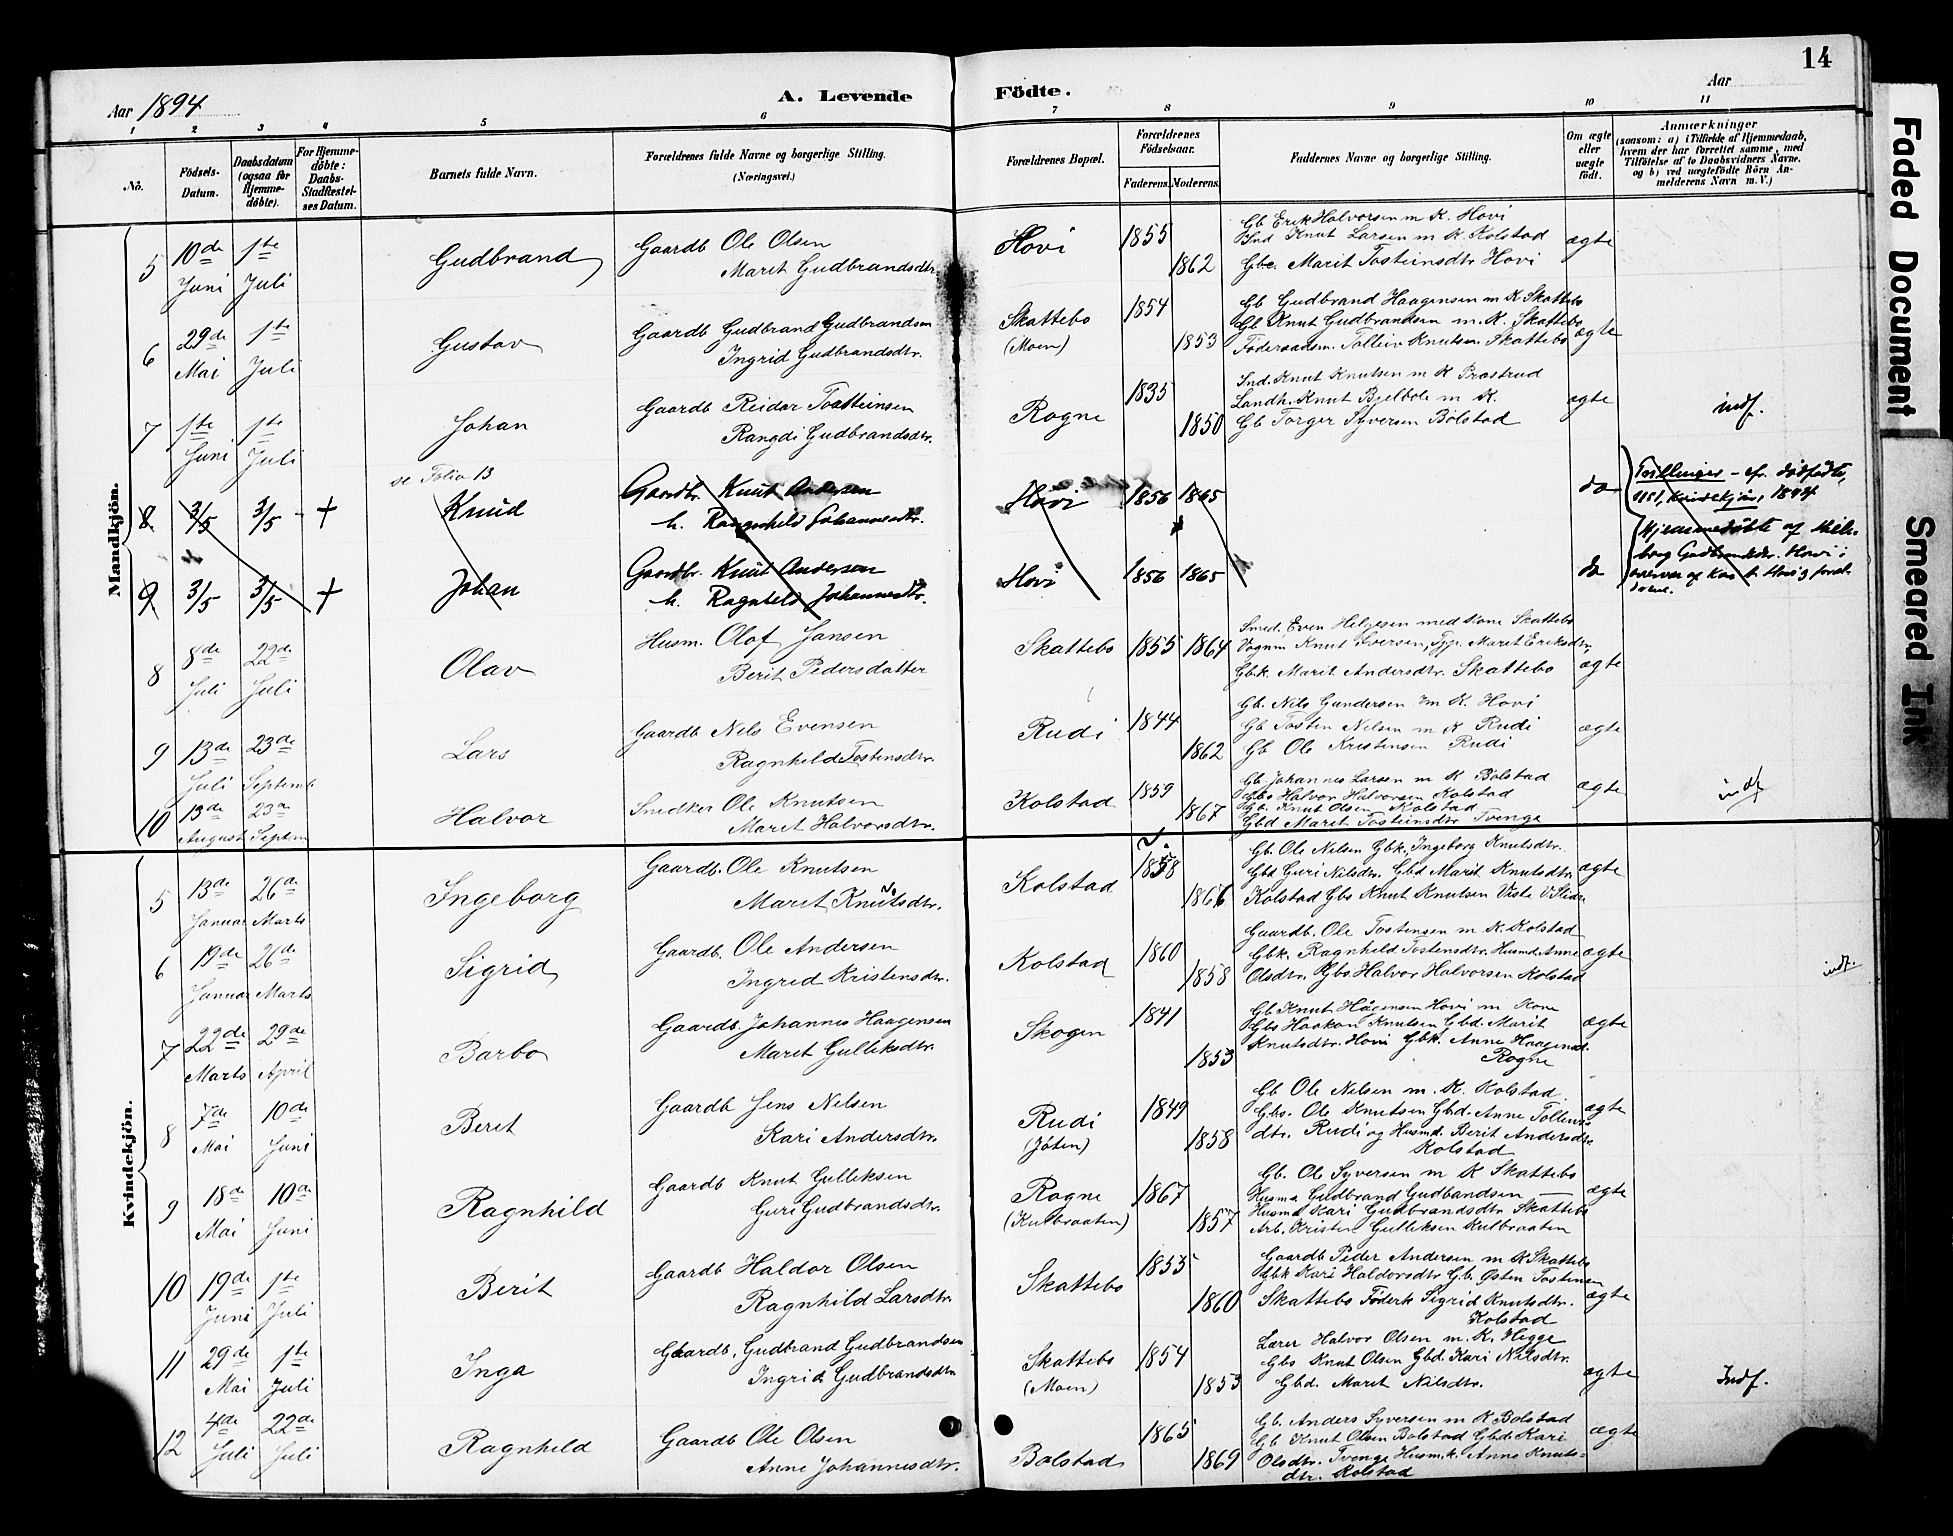 14
Aar 1894
A. Levende Födte.
Aar
1 2 3 4 5 6 7 8 9 10 11
No.
Födsels-Datum.
Daabsdatum (ogsaa for Hjemme-döbte).
For Hjemme-döbte: Daabs-Stadfæstel-ses Datum.
Barnets fulde Navn.
Forældrenes fulde Navne og borgerlige Stilling.
(Næringsvei.)
Forældrenes Bopæl.
Forældrenes Födselsaar.
Faderens. Moderens.
Faddernes Navne og borgerlige Stilling.
Om ægte eller uægte født.
Anmærkninger
(saasom: a) i Tilfælde af Hjemmedaab,
hvem der har forrettet samme, med
Tilföielse af to Daabsvidners Navne.
og b) ved uægtefödte Börn An-
melderens Navn m. V.)
Mandkjön.
5 10de Juni 1ste Juli Gudbrand
Gaardb Ole Olsen
Marit Gudbrandsdtr.
Hovi 1855 1862
Gb Erik Halvorsen m K. Hovi
Ind Knut Larsen m K. Kolstad
Gbe. Marit Tosteinsdtr Hovi
ægte
6 29de Mai 1ste Juli Gustav
Gaardb Gudbrand Gudbrandsen
Ingrid Gudbrandsdtr.
Skattebo (Moen) 1854 1853
Gb Gudbrand Haagensen m K Skattebo
Gb Knut Gudbrandsen m. K. Skattebo
Föderaadsm. Tolleiv Knutsen Skattebo
ægte
7 1ste Juni 1ste Juli Johan
Gaardb Reidar Tosteinsen
Rangdi Gudbrandsdtr.
Rogne 1835 1850
Ind. Knut Knutsen m K Prastrud
Landh. Knut Bjelbole m K.
Gb Torger Syversen Bolstad
ægte indf.
se Folio 13
8. 3/5 3/5 + Knud
Gaardbr. Knut Andersen
h. Ragnhild Johannesdtr.
Hovi 1856 1865
do
Tvillinger - cfr. dödfödte,
Kvindekjön, 1894
9 3/5 3/5 + Johan
Gaardbr. Knut Andersen
h. Ragnhild Johannesdtr.
Hovi 1856 1865
do
Hjemmedöbte af
Gudbrandsdtr. Hovi i
8 8de Juli 22de Juli Olav
Husm. Olaf Jansen
Berit Pedersdatter
Skattebo 1855 1864
Smed. Even Helgesen med Kone Skattebo
Vognm Knut Iversen, Tjp. Marit Eriksdtr,
Gbk. Marit Andersdtr. Skattebo
ægte
9 13de Juli 23de Septemb Lars
Gaardb Nels Evensen
Ragnhild Tostensdtr.
Rudi 1844 1862
Gb. Nils Gundersen m K. Hovi
Gb Tosten Nelsen m K Rudi
Gb Ole Kristensen Rudi
ægte
10 13de August 23de Septm Halvor
Snedker Ole Knutsen
Marit Halvorsdtr.
Kolstad 1859 1867
Gb. Johannes Larsen m K Bolstad
Gbs Halvor Halvorsen Kolstad
Gb. Knut Olsen Kolstad
Gbd Marit Tosteinsdtr Tvenge
ægte indf
Kvindekjön.
5 13de Januar 26de Marts Ingeborg
Gaardb. Ole Knutsen
Marit Knutsdtr.
Kolstad 1858 1866
Gb. Ole Nilsen Gbk. Ingeborg Knutsdtr.
Gbd Guri Nilsdtr. Gbd Marit Knutsdtr
Kolstad Gbs Knut Knutsen Viste V Slidre
ægte
6 19de Januar 26de Marts Sigrid
Gaardb. Ole Andersen
Ingrid Kristensdtr.
Kolstad 1860 1858
Gaardb. Ole Tostensen m K. Kolstad
Gbk. Ragnhild Tostensdtr. Husmd. Anne
Olsdtr. Gbs Halvor Halvorsen Kolstad
ægte indf.
7 22de Marts 29de April Barbo
Gaardb. Johannes Haagensen
Marit Gulliksdtr.
Skogen 1841 1853
Gb Knut Hågensen Hovi m Kone
Gbs Haakon Knutsen Gbd. Marit
Knutsdtr. Hovi Gbk. Anne Haagensd.
Rogne
ægte
8 7de Mai 10de Juni Berit
Gaardb Jens Nelsen
Kari Andersdtr.
Rudi (Joten) 1849 1858
Gb Ole Nilsen m. K. Kolstad
Gbs. Ole Knutsen Gbd. Anne Tolleivs
dtr. Rudi og Husmd. Berit Andersdtr
Kolstad
ægte
9 18de Mai 10de Juni Ragnhild
Gaardb Knut Gulliksen
Guri Gudbrandsdtr.
Rogne (Kulbraaten) 1867 1857
Gb. Ole Syversen m K Skattebo
Husma Gudbrand Gudbandsen —
Husmd Kari Gudbrandsdtr Skattebo
Arb. Kristen Gulliksen Kulbraaten
ægte
10 19de Juni 1ste Juli Berit
Gaardb Haldor Olsen
Ragnhild Larsdtr
Skattebo 1855 1860
Gaardb Peder Andersen m K Skattebo
Gbk Kari Haldorsdtr Gb. Østen Tostensen
Skattebo Föderk Sigrid Knutsdtr.
Kolstad
ægte
11 29de Mai 1ste Juli Inga
Gaardb. Gudbrand Gudbrandsen
Ingrid Gudbrandsdtr
Skattebo (Moen) 1854 1853
Lærer Halvor Olsen m. K. Hegge
Gbs Knut Olsen Gbd. Kari Nilsdtr.
Gbd. Marit Nilsdtr.
ægte Indf.
12 4de Juli 22de Juli Ragnhild
Gaardb Ole Olsen
Anne Johannesdtr.
Bolstad 1865 1869
Gb. Anders Syversen m K Bolstad
Gb Knut Olsen Bolstad Gbd. Kari
Olsdtr. Tvenge Husm.k. Anne Knuts-
dtr. Kolstad
ægte
Faded Document
Smeared Ink